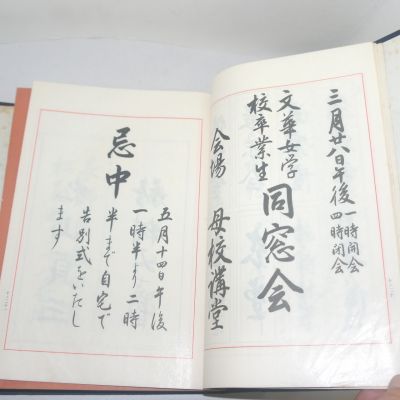 三月廿八日午後一時開会
四時閉会
文華女学
校卒業生
同窓会
会場 母校講堂
忌中
五月十四日午後
一時半より二時
半まで自宅で
告別式をいたし
ます